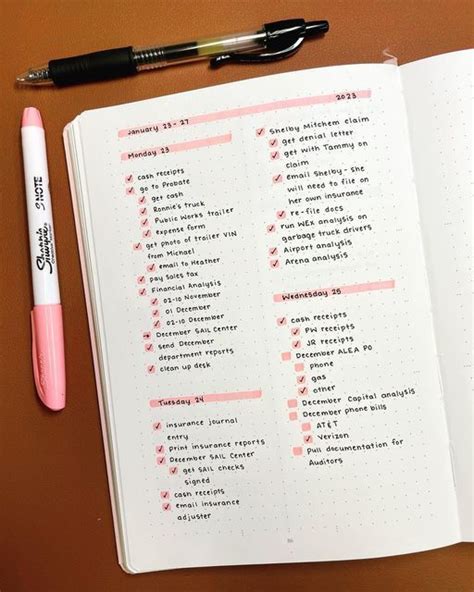 January 23 - 27
2023
Monday 23
cash receipts
go to Probate
get cash
Ronnie's truck
Public Works trailer
expense form
get photo of trailer VIN
from Michael
email to Heather
pay sales tax
Financial Analysis
02-10 November
01 December
02-10 December
December SAIL Center
send December
department reports
clean up desk
Tuesday 24
insurance journal
entry
Print insurance reports
December SAIL Center
get SAIL checks
signed
cash receipts
email insurance
adjuster
Shelby Mitchem claim
get denial letter
get with Tammy on
claim
email Shelby - she
will need to file on
her own insurance
re-file docs
run WEX analysis on
garbage truck drivers
Airport analysis
Arena analysis
Wednesday 25
cash receipts
PW receipts
JR receipts
December ALEA PO
phone
gas
other
December Capital analysis
December phone bills
AT&T
Verizon
Pull documentation for
Auditors
Sharpie
S·NOTE